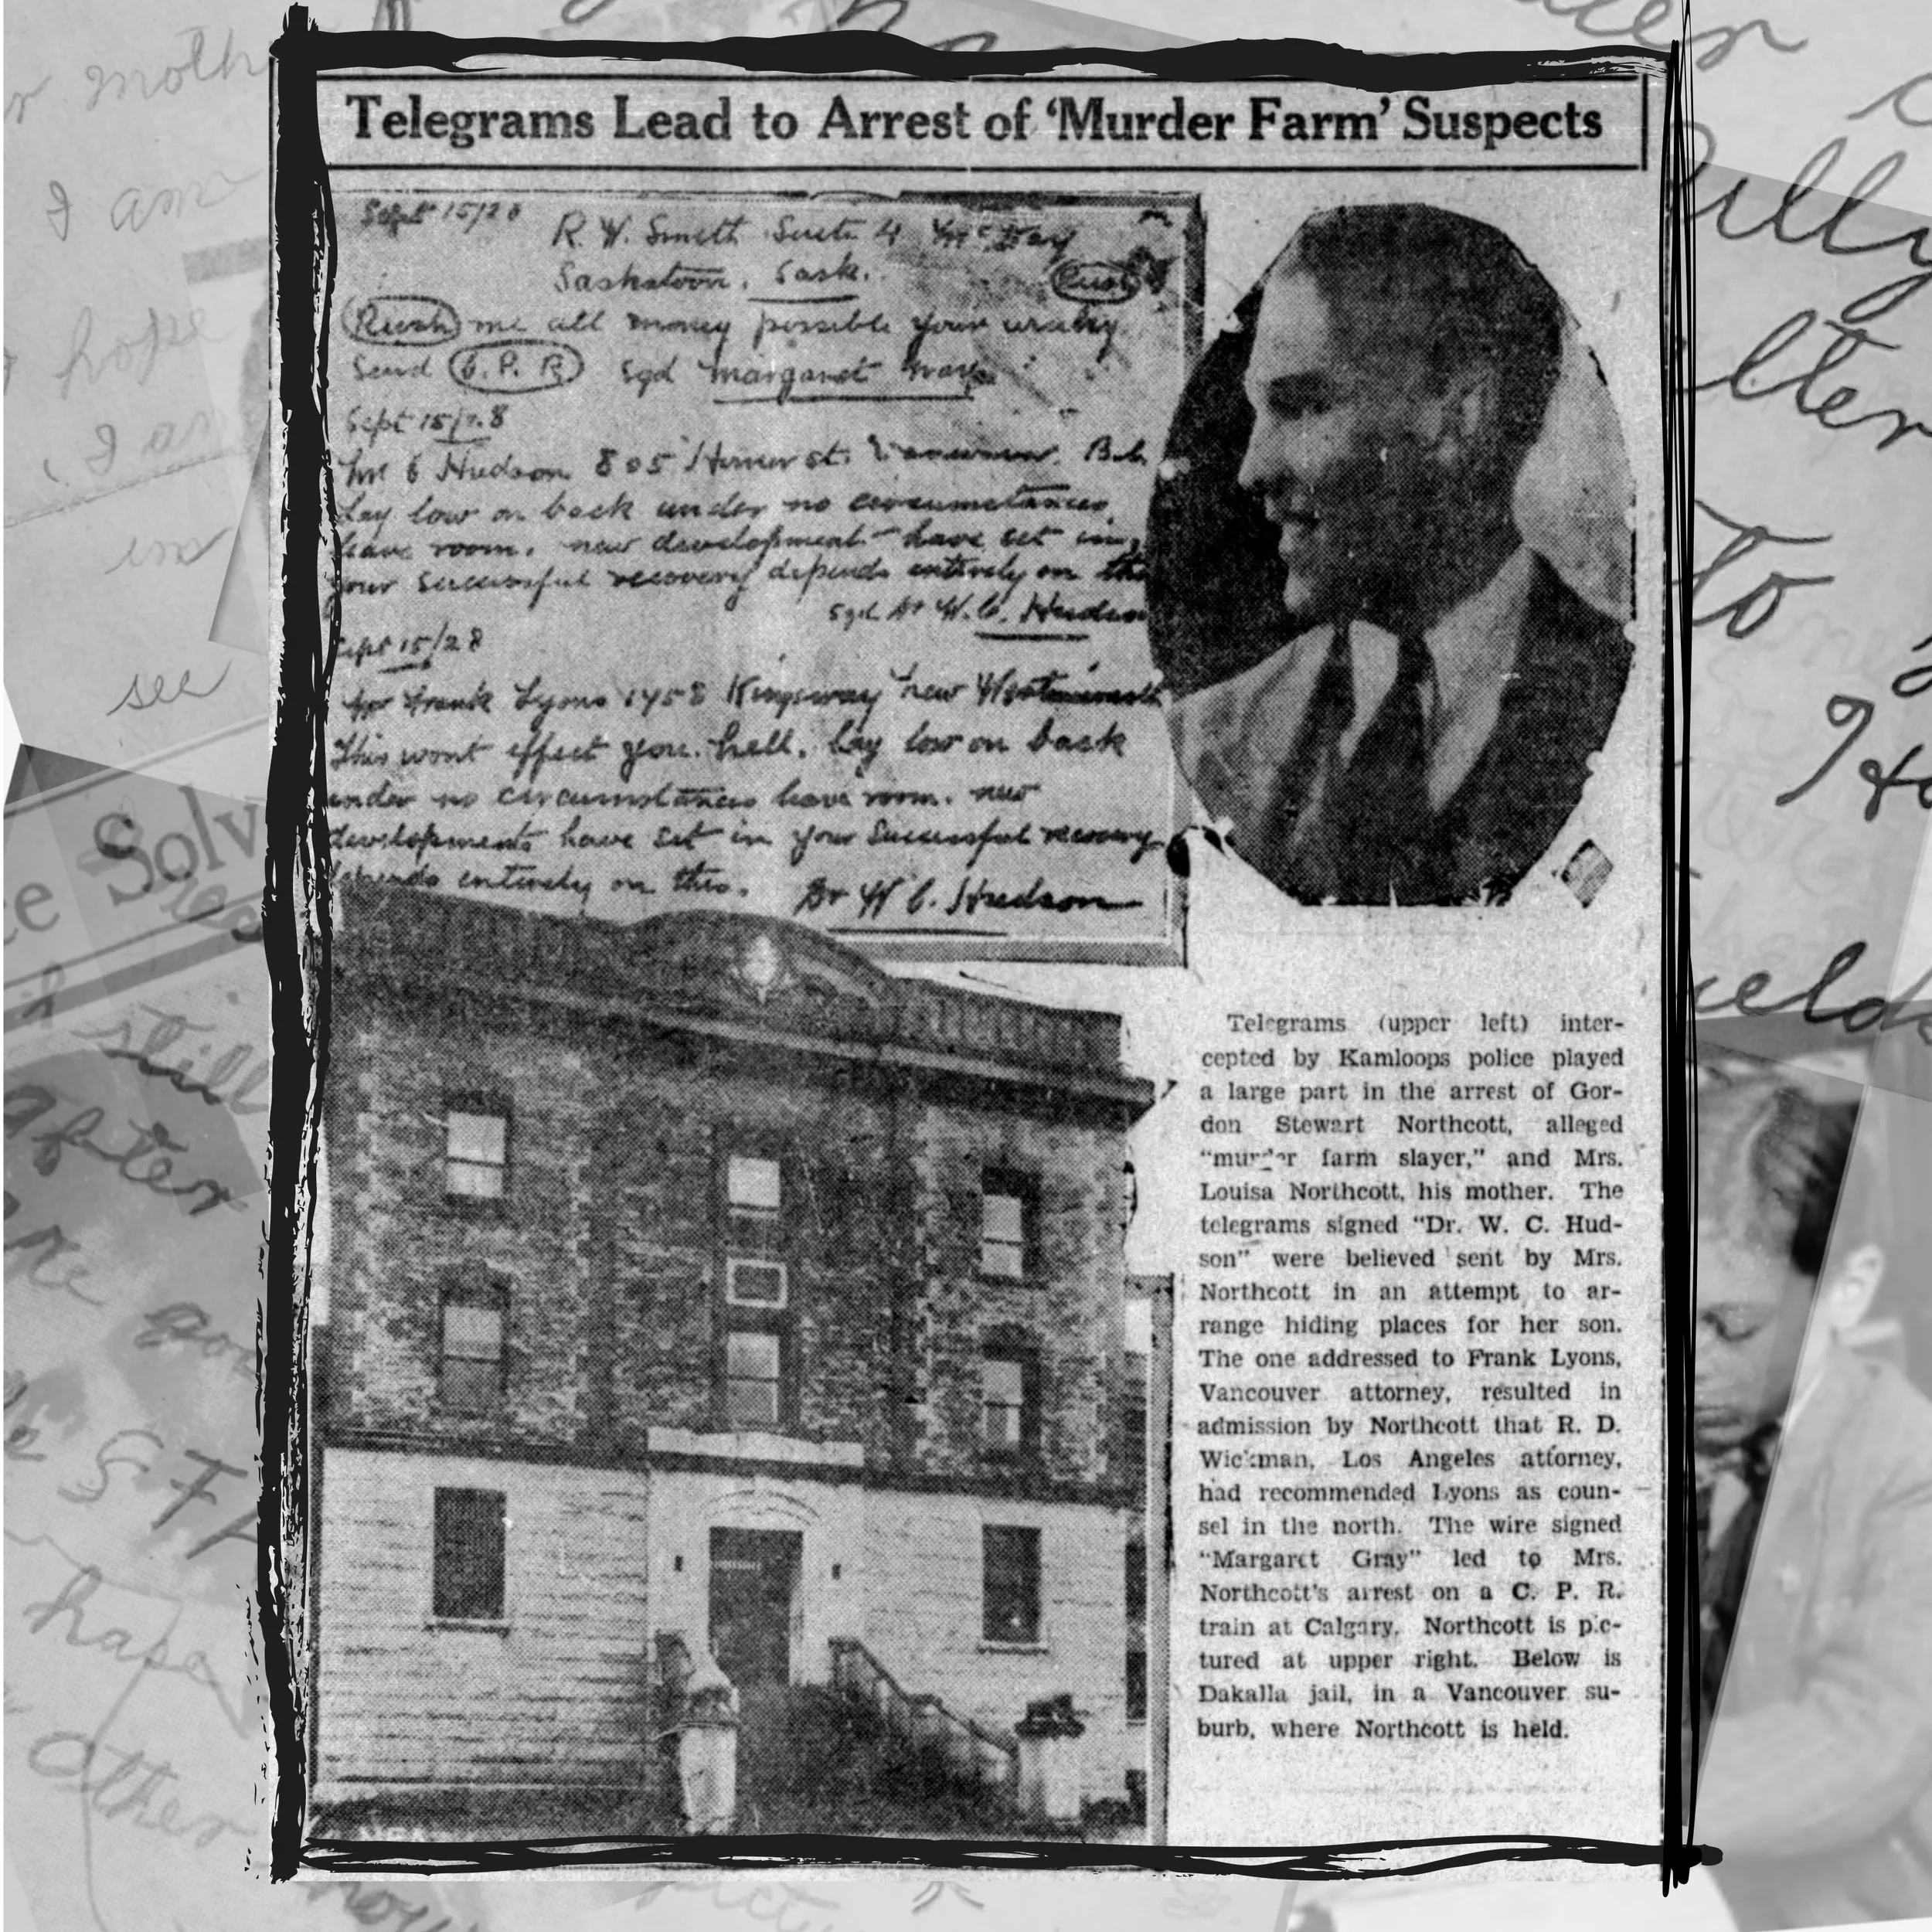 Telegrams Lead to Arrest of ‘Murder Farm’ Suspects
Sept 15/28
R. W. Smith Suite 4
Saskatoon, Sask.
Rush
Rush me all money possible your
Send C.P.R. sgd Margaret
Sept 15/28
Hudson 805 Homer st. B.C.
Lay low on back under no circumstances
leave room. new development have set in,
your successful recovery depends entirely on this
sgd Dr W. C. Hudson
Sept 15/28
Mr Frank Lyons 1458 Kingsway New Westminster
This wont effect you. hell. Lay low on back
under no circumstances leave room. new
developments have set in your successful recovery
depends entirely on this. Dr W C. Hudson
Telegrams (upper left) inter-
cepted by Kamloops police played
a large part in the arrest of Gor-
don Stewart Northcott, alleged
“murder farm slayer,” and Mrs.
Louisa Northcott, his mother. The
telegrams signed “Dr. W. C. Hud-
son” were believed sent by Mrs.
Northcott in an attempt to ar-
range hiding places for her son.
The one addressed to Frank Lyons,
Vancouver attorney, resulted in
admission by Northcott that R. D.
Wickman, Los Angeles attorney,
had recommended Lyons as coun-
sel in the north. The wire signed
“Margaret Gray” led to Mrs.
Northcott's arrest on a C. P. R.
train at Calgary. Northcott is pic-
tured at upper right. Below is
Dakalla jail, in a Vancouver su-
burb, where Northcott is held.
I am
hope
see
Solv
still
after
hape
other
to